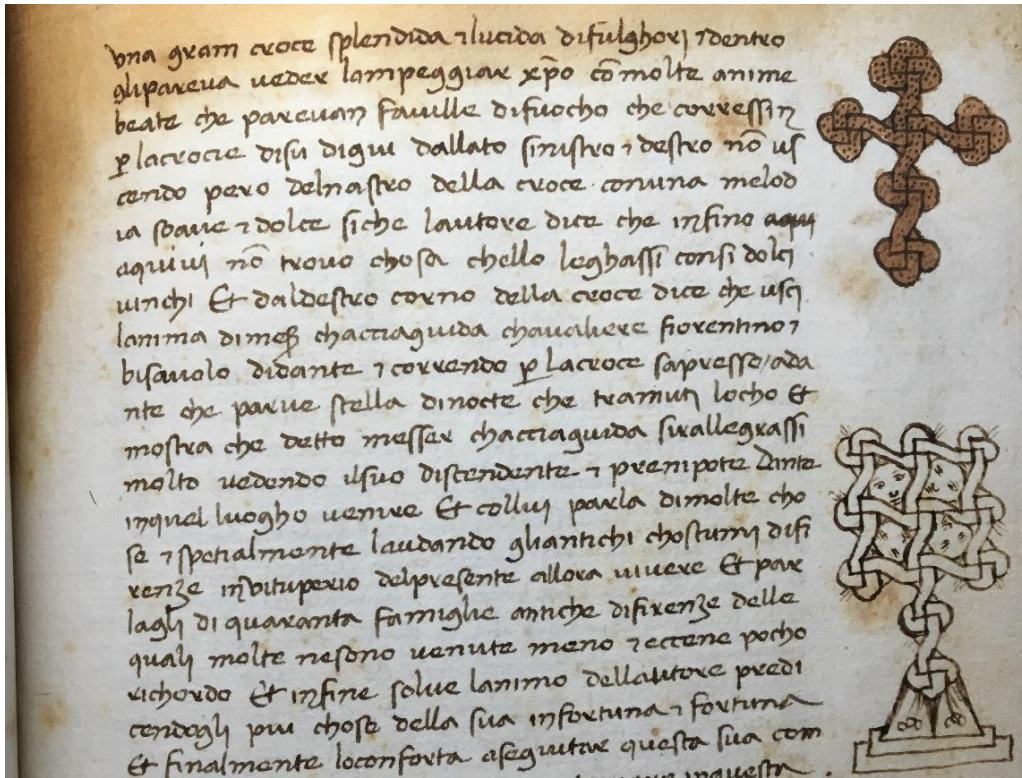 vna gram croce splendida ⁊ lucida difulghori ⁊ dentro
glipareva veder lampeggiar xp̄o cō molte anime
beate che parevan faville difuocho che corressin
ꝑ lacrocie disu digiu dallato sinistro ⁊ destro nō us
cendo pero delnastro della croce conuna melod
ia soave ⁊ dolce siche lautore dice che infino aqui
aquivi nō trovo chosa chello leghassi consi dolci
vinchi Et daldestro corno della croce dice che usci
lanima dimeẜ chacciaguida chavaliere fiorentino ⁊
bisavolo didante ⁊ correndo ꝑ lacroce sapresso ada
nte che parve stella dinocte che tramuti locho Et
mostra che detto messer chacciaguida sirallegrassi
molto vedendo ilsuo discendente ⁊ prenipote Dante
inquel luogho venire Et collui parla dimolte cho
se ⁊ spetialmente laudando gliantichi chostumi difi
renze invituperio delpresente allora vivere Et par
lagli di quaranta famiglie antiche difirenze delle
quali molte nesono venute meno ⁊ eccene pocho
richordo Et infine solve lanimo dellautore predi
cendogli piu chose della sua infortuna ⁊ fortuna
Et finalmente loconforta aseguitar questa sua com
inquesta